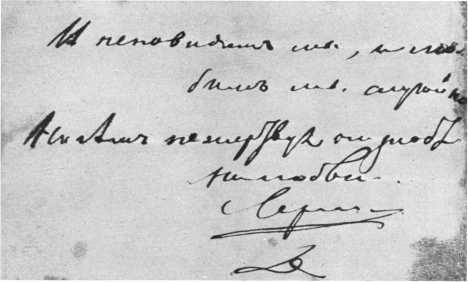 И ненавидимъ мы, и лю-
бимъ мы случайно
Ничѣмъ не жертвуя ни злобѣ
ни любви.